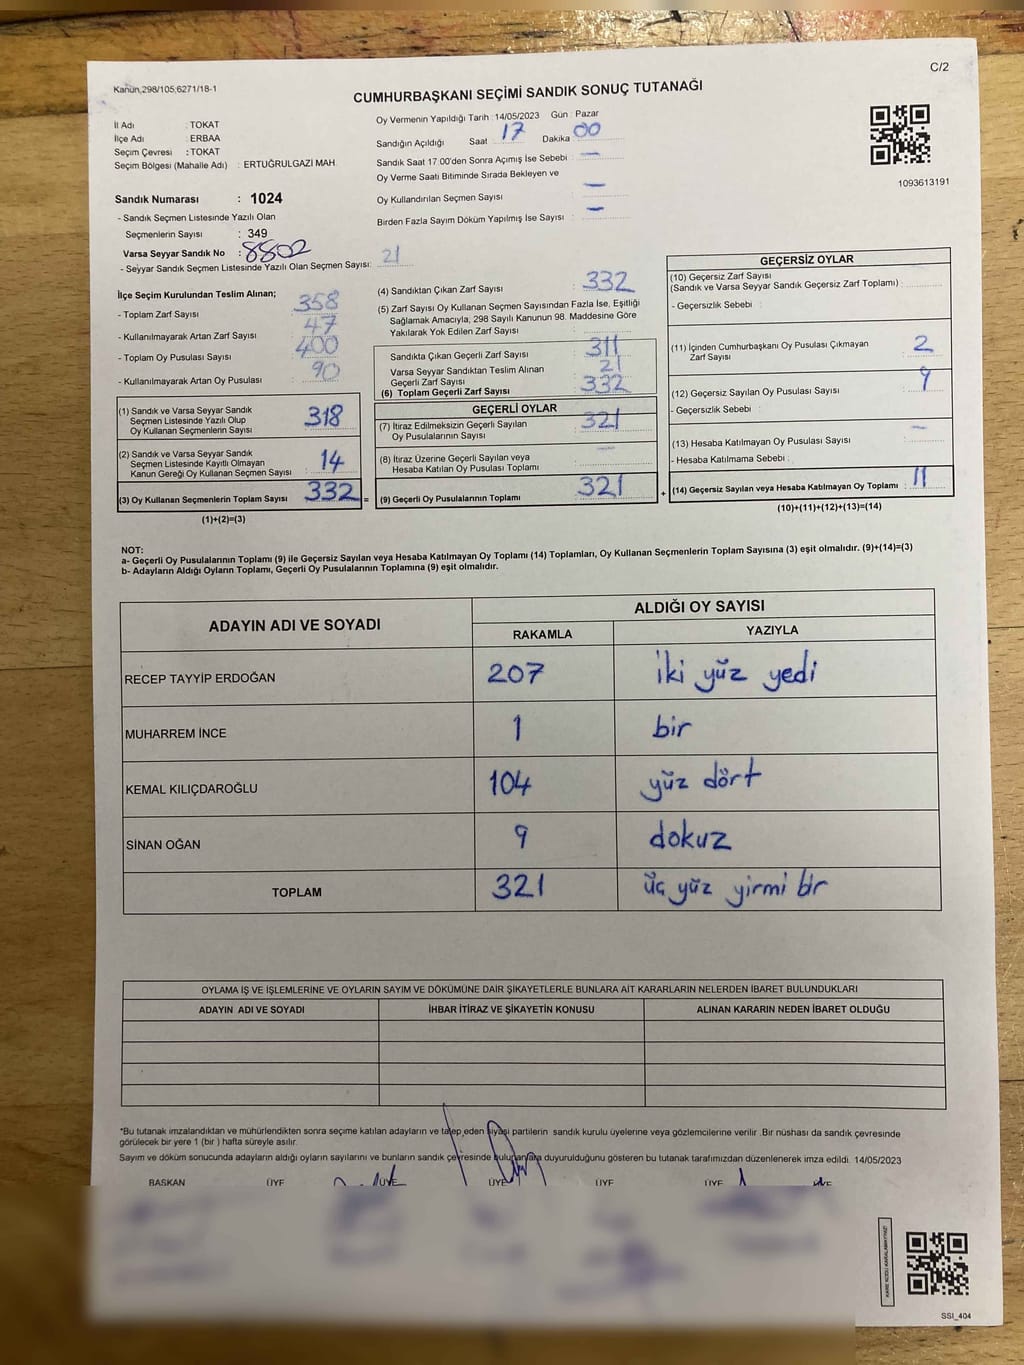 C/2
Kanun,298/105;6271/18-1
CUMHURBAŞKANI SEÇİMİ SANDIK SONUÇ TUTANAĞI
İl Adı : TOKAT
İlçe Adı : ERBAA
Seçim Çevresi : TOKAT
Seçim Bölgesi (Mahalle Adı) : ERTUĞRULGAZİ MAH.
Oy Vermenin Yapıldığı Tarih :14/05/2023 Gün : Pazar
Sandığın Açıldığı Saat 17 Dakika 00
Sandık Saat 17 00'den Sonra Açımış İse Sebebi : —
Oy Verme Saati Bitiminde Sırada Bekleyen ve
Oy Kullandırılan Seçmen Sayısı : —
Birden Fazla Sayım Döküm Yapılmış İse Sayısı : —
1093613191
Sandık Numarası : 1024
- Sandık Seçmen Listesinde Yazılı Olan
Seçmenlerin Sayısı : 349
Varsa Seyyar Sandık No : 8802
- Seyyar Sandık Seçmen Listesinde Yazılı Olan Seçmen Sayısı: 21
İlçe Seçim Kurulundan Teslim Alınan;
- Toplam Zarf Sayısı : 358
- Kullanılmayarak Artan Zarf Sayısı : 47
- Toplam Oy Pusulası Sayısı : 400
- Kullanılmayarak Artan Oy Pusulası : 90
(1) Sandık ve Varsa Seyyar Sandık
Seçmen Listesinde Yazılı Olup
Oy Kullanan Seçmenlerin Sayısı 318
(2) Sandık ve Varsa Seyyar Sandık
Seçmen Listesinde Kayıtlı Olmayan
Kanun Gereği Oy Kullanan Seçmen Sayısı 14
(3) Oy Kullanan Seçmenlerin Toplam Sayısı 332 =
(1)+(2)=(3)
(4) Sandıktan Çıkan Zarf Sayısı : 332
(5) Zarf Sayısı Oy Kullanan Seçmen Sayısından Fazla İse, Eşitliği
Sağlamak Amacıyla, 298 Sayılı Kanunun 98. Maddesine Göre
Yakılarak Yok Edilen Zarf Sayısı :
Sandıkta Çıkan Geçerli Zarf Sayısı : 311
Varsa Seyyar Sandıktan Teslim Alınan
Geçerli Zarf Sayısı : 21
(6) Toplam Geçerli Zarf Sayısı : 332
GEÇERLİ OYLAR
(7) İtiraz Edilmeksizin Geçerli Sayılan
Oy Pusulalarının Sayısı : 321
(8) İtiraz Üzerine Geçerli Sayılan veya
Hesaba Katılan Oy Pusulası Toplamı : —
(9) Geçerli Oy Pusulalarının Toplamı : 321 +
GEÇERSİZ OYLAR
(10) Geçersiz Zarf Sayısı
(Sandık ve Varsa Seyyar Sandık Geçersiz Zarf Toplamı) :
- Geçersizlik Sebebi :
(11) İçinden Cumhurbaşkanı Oy Pusulası Çıkmayan
Zarf Sayısı : 2
(12) Geçersiz Sayılan Oy Pusulası Sayısı : 9
- Geçersizlik Sebebi :
(13) Hesaba Katılmayan Oy Pusulası Sayısı : —
- Hesaba Katılmama Sebebi :
(14) Geçersiz Sayılan veya Hesaba Katılmayan Oy Toplamı : 11
(10)+(11)+(12)+(13)=(14)
NOT:
a- Geçerli Oy Pusulalarının Toplamı (9) ile Geçersiz Sayılan veya Hesaba Katılmayan Oy Toplamı (14) Toplamları, Oy Kullanan Seçmenlerin Toplam Sayısına (3) eşit olmalıdır. (9)+(14)=(3)
b- Adayların Aldığı Oyların Toplamı, Geçerli Oy Pusulalarının Toplamına (9) eşit olmalıdır.
ADAYIN ADI VE SOYADI ALDIĞI OY SAYISI
RAKAMLA YAZIYLA
RECEP TAYYİP ERDOĞAN 207 iki yüz yedi
MUHARREM İNCE 1 bir
KEMAL KILIÇDAROĞLU 104 yüz dört
SİNAN OĞAN 9 dokuz
TOPLAM 321 üç yüz yirmi bir
OYLAMA İŞ VE İŞLEMLERİNE VE OYLARIN SAYIM VE DÖKÜMÜNE DAİR ŞİKAYETLERLE BUNLARA AİT KARARLARIN NELERDEN İBARET BULUNDUKLARI
ADAYIN ADI VE SOYADI İHBAR İTİRAZ VE ŞİKAYETİN KONUSU ALINAN KARARIN NEDEN İBARET OLDUĞU
*Bu tutanak imzalandıktan ve mühürlendikten sonra seçime katılan adayların ve talep eden siyasi partilerin sandık kurulu üyelerine veya gözlemcilerine verilir .Bir nüshası da sandık çevresinde
görülecek bir yere 1 (bir ) hafta süreyle asılır.
Sayım ve döküm sonucunda adayların aldığı oyların sayılarını ve bunların sandık çevresinde bulunanlara duyurulduğunu gösteren bu tutanak tarafımızdan düzenlenerek imza edildi. 14/05/2023
BAŞKAN ÜYE ÜYE ÜYE ÜYE ÜYE
KARE KODU KARALAMAYINIZ!
SSI_404